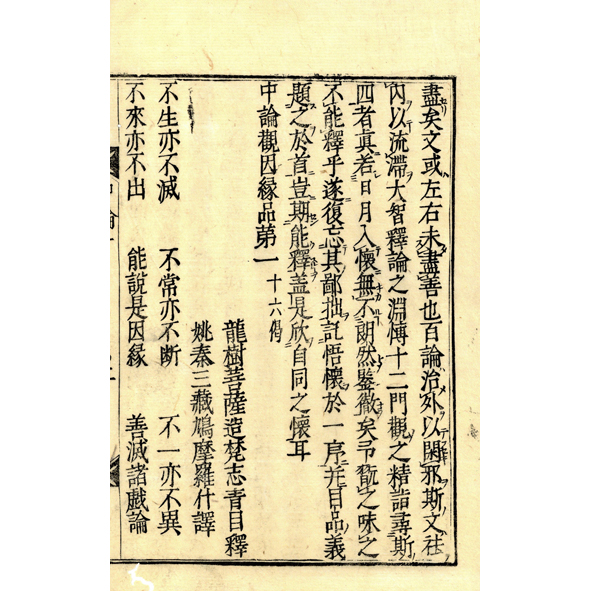 盡矣文或左右未盡善也百論治外以閑邪斯文祛
內以流滯大智釋論之淵博十二門觀之精詣尋斯
四者眞若日月入懷無不朗然鑒徹矣予翫之味之
不能釋乎遂復忘其鄙拙託悟懷於一序并目品義
題之於首豈期能釋盖是欣自同之懷耳
中論觀因縁品第一 十六偈
龍樹菩薩造梵志青目釋
姚秦三藏鳩摩羅什譯
不生亦不滅 不常亦不断 不一亦不異
不來亦不出 能說是因縁 善滅諸戲論